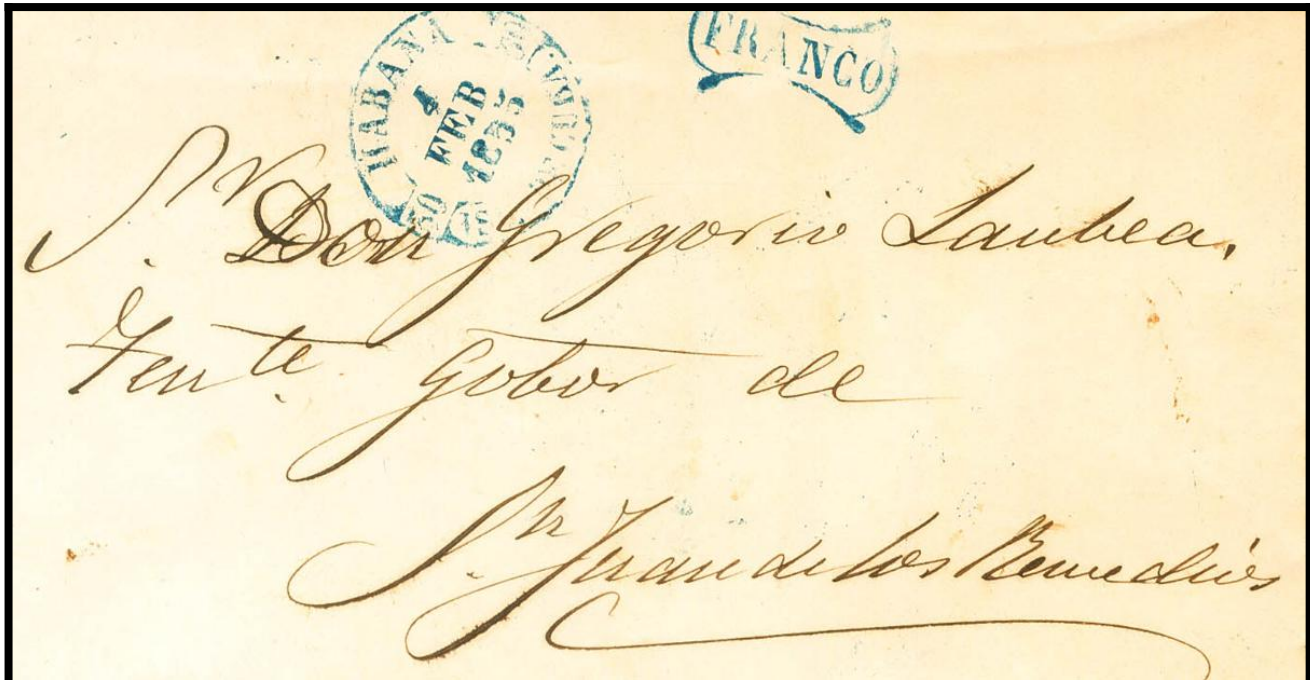 FRANCO
HABANA
4
FEB
1855
Sr. Don Gregorio Laubea.
Tente. Gobor de
Sn. Juan de los Remedios